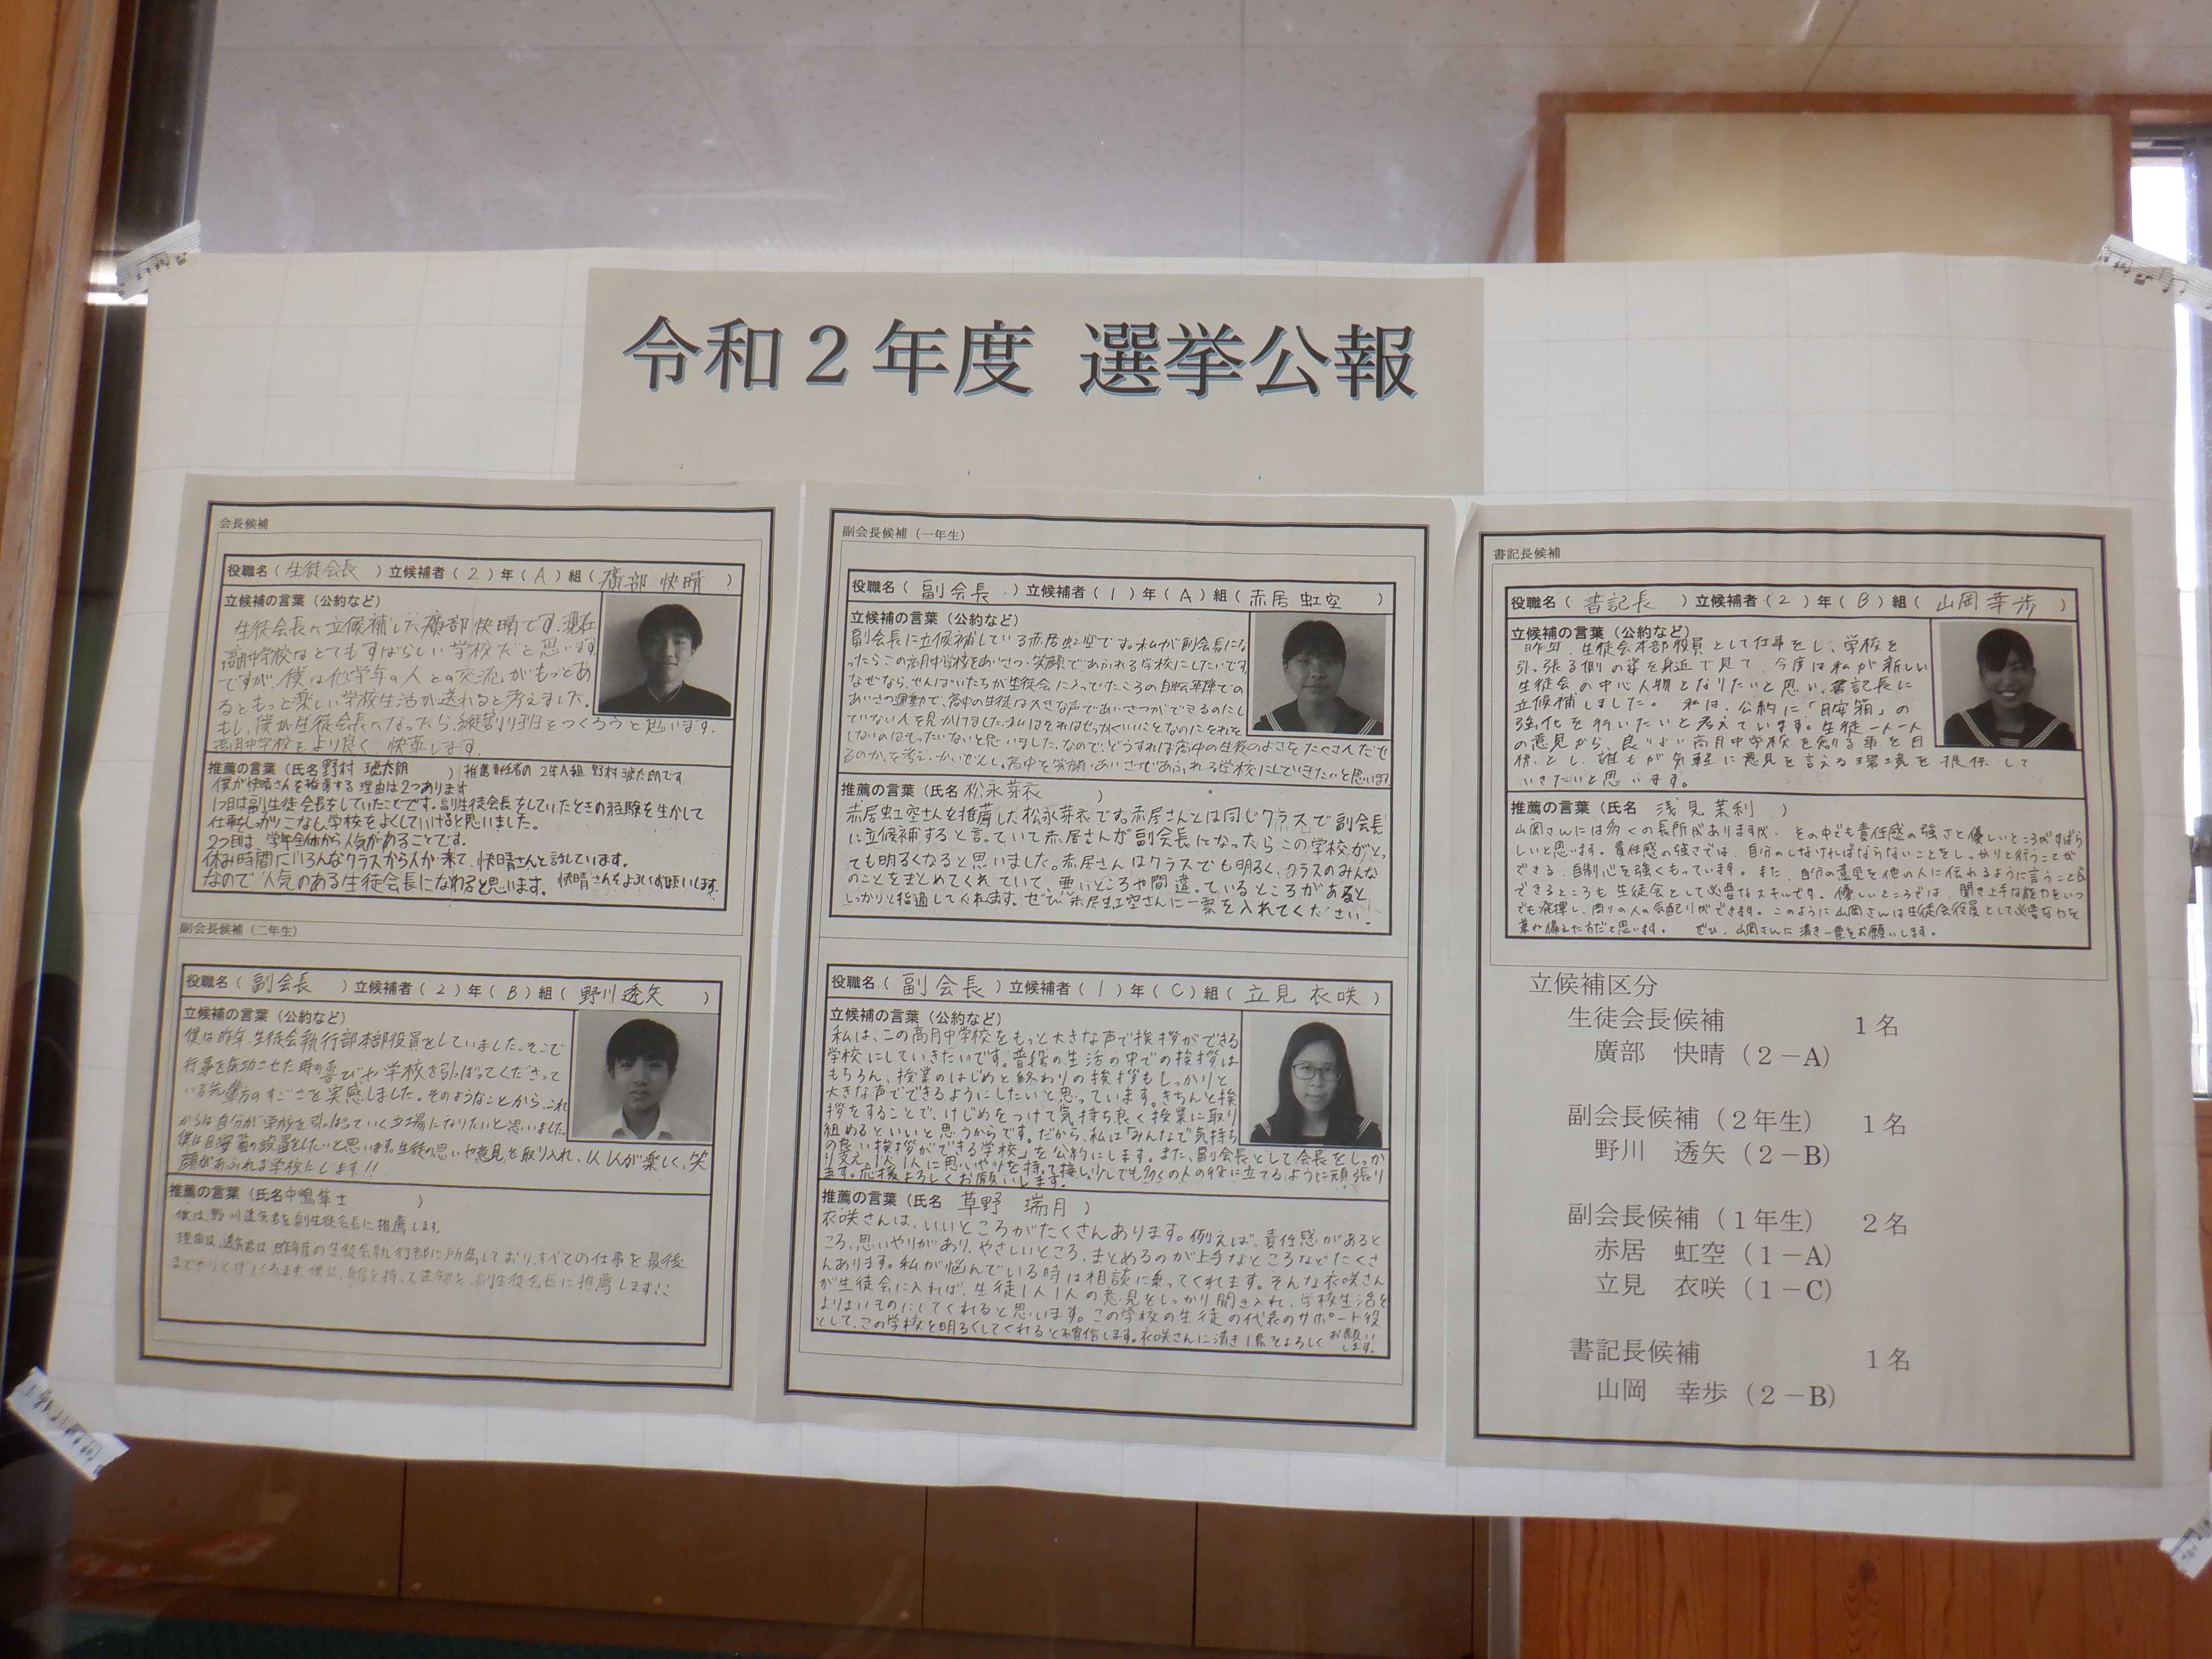 令和２年度 選挙公報
会長候補
役職名（生徒会長）立候補者（２）年（A）組（廣部 快晴）
立候補の言葉（公約など）
生徒会長へ立候補した廣部快晴です。現在
高月中学校はとてもすばらしい学校だと思います。
ですが、僕は他学年の人との交流がもっとあ
るともっと楽しい学校生活が送れると考えました。
もし、僕が生徒会長へなったら、縦割り班をつくろうと思います。
高月中学校をより良く、快革します。
推薦の言葉（氏名 野村 琥太朗）推薦責任者の2年A組 野村琥太朗です
僕が快晴さんを推薦する理由は2つあります
1つ目は副生徒会長をしていたことです。副生徒会長をしていたときの経験を生かして
仕事をしっかりこなし、学校をよくしていけると思いました。
2つ目は、学年全体から人気があることです。
休み時間にいろんなクラスから人が来て、快晴さんと話しています。
なので人気のある生徒会長になれると思います。快晴さんをよろしくお願いします。
副会長候補（二年生）
役職名（副会長）立候補者（２）年（B）組（野川透矢）
立候補の言葉（公約など）
僕は昨年、生徒会執行部本部役員をしていました。そこで
行事を成功させた時の喜びや学校を引っぱってくださって
いる先輩方のすごさを実感しました。そのようなことから、これ
からは自分が学校を引っぱっていく立場になりたいと思いました。
僕は目安箱の設置をしたいと思います。生徒の思いや意見を取り入れ、1人1人が楽しく、笑
顔があふれる学校にします!!
推薦の言葉（氏名 中嶋隼士）
僕は野川透矢君を副生徒会長に推薦します。
理由は、透矢君は昨年度の生徒会執行部に所属しており、すべての仕事を最後
までやりとげてくれます。僕は、自信を持って透矢君を、副生徒会長に推薦します!!
副会長候補（一年生）
役職名（副会長）立候補者（1）年（A）組（赤居 虹空）
立候補の言葉（公約など）
副会長に立候補している赤居虹空です。私が副会長にな
ったらこの高月中学校をあいさつ・笑顔であふれる学校にしたいです。
なぜなら、せんぱいたちが生徒会に入っていたころの自転車庫での
あいさつ運動で、高中の生徒は大きな声であいさつができるのにし
ていない人を見かけました。私はそれはせっかくいいことなのにそれを
しないのはもったいないと思いました。なので、どうすれば高中の生徒のよさをたくさんだせ
るのか、を考え、かいぜんし、高中を笑顔・あいさつであふれる学校にしていきたいと思います
推薦の言葉（氏名 松永芽衣）
赤居虹空さんを推薦した松永芽衣です。赤居さんとは同じクラスで副会長
に立候補すると言っていて赤居さんが副会長になったらこの学校がとっ
ても明るくなると思いました。赤居さんはクラスでも明るく、クラスのみんな
のことをまとめてくれていて、悪いところや間違っているところがあると、
しっかりと指摘してくれます。ぜひ赤居虹空さんに一票を入れてください!
役職名（副会長）立候補者（1）年（C）組（立見 衣咲）
立候補の言葉（公約など）
私は、この高月中学校をもっと大きな声で挨拶ができる
学校にしていきたいです。普段の生活の中での挨拶は
もちろん、授業のはじめと終わりの挨拶もしっかりと
大きな声でできるようにしたいと思っています。きちんと挨
拶をすることで、けじめをつけて気持ち良く授業に取り
組めるといいと思うからです。だから、私は「みんなで気持ち
の良い挨拶ができる学校」を公約にします。また、副会長として会長をしっか
り支え、1人1人に思いやりを持って接し、少しでも多くの人の役に立てるように頑張り
ます。応援よろしくお願いします。
推薦の言葉（氏名 草野 瑞月）
衣咲さんは、いいところがたくさんあります。例えば、責任感があると
ころ、思いやりがあり、やさしいところ、まとめるのが上手なところなどたくさ
んあります。私が悩んでいる時は相談に乗ってくれます。そんな衣咲さん
が生徒会に入れば、生徒1人1人の意見をしっかり聞き入れ、学校生活を
よりよいものにしてくれると思います。この学校の生徒の代表のサポート役
として、この学校を明るくしてくれると確信します。衣咲さんに清き1票をよろしくお願いします。
書記長候補
役職名（書記長）立候補者（2）年（B）組（山岡幸歩）
立候補の言葉（公約など）
昨年、生徒会本部役員として仕事をし、学校を
引っ張る側の姿を身近で見て、今度は私が新しい
生徒会の中心人物となりたいと思い、書記長に
立候補しました。私は、公約に「目安箱」の
強化を行いたいと考えています。生徒一人一人
の意見から、良いよい高月中学校を創る事を目
標とし、誰もが気軽に意見を言える環境を提供して
いきたいと思います。
推薦の言葉（氏名 浅見茉利）
山岡さんには多くの長所がありますが、その中でも責任感の強さと優しいところがすばら
しいと思います。責任感の強さでは、自分のしなければならないことをしっかりと行うことが
できる、自制心を強くもっています。また、自分の意見を他の人に伝わるように言うことが
できるところも生徒会として必要なスキルです。優しいところでは、聞き上手な能力をいつ
でも発揮し、周りの人の気配りができます。このように山岡さんは生徒会役員として必要な力を
兼ね備えた方だと思います。ぜひ、山岡さんに清き一票をお願いします。
立候補区分
生徒会長候補 １名
廣部 快晴（２－A）
副会長候補（２年生） １名
野川 透矢（２－B）
副会長候補（１年生） ２名
赤居 虹空（１－A）
立見 衣咲（１－C）
書記長候補 １名
山岡 幸歩（２－B）